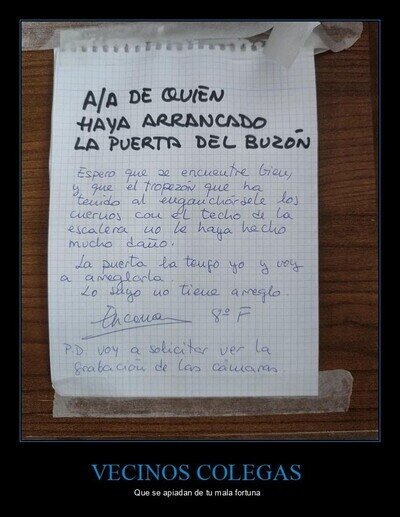 A/A DE QUIEN
HAYA ARRANCADO
LA PUERTA DEL BUZÓN
Espero que se encuentre bien,
y que el tropezón que ha
tenido al enganchársele los
cuernos con el techo de la
escalera no le haya hecho
mucho daño.
La puerta la tengo yo y voy
a arreglarla.
Lo suyo no tiene arreglo
Encarna 8º F
P.D. voy a solicitar ver la
grabación de las cámaras.
VECINOS COLEGAS
Que se apiadan de tu mala fortuna